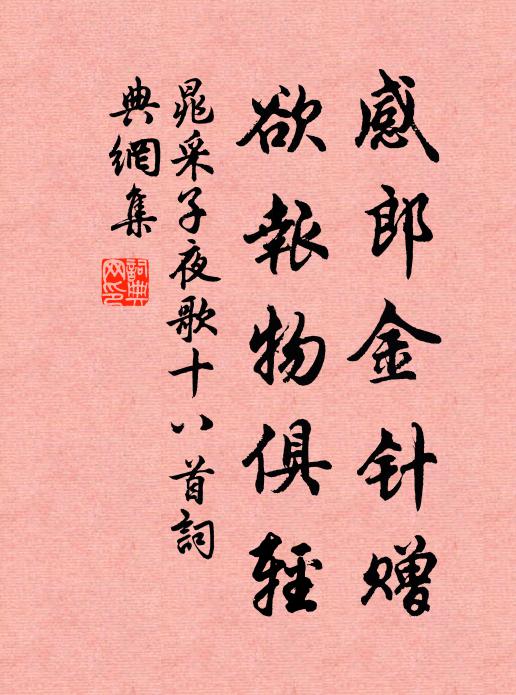 感郎金针赠
欲報物俱輕
晁采子夜歌十八首詞
典網集
詞典
网印